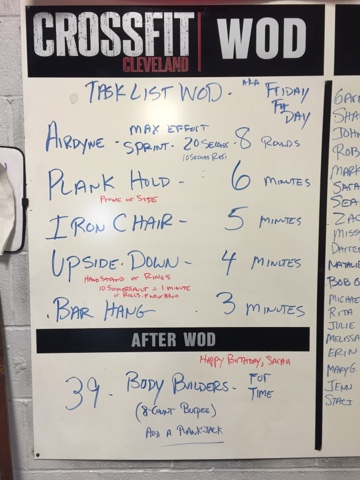 CROSSFIT
CLEVELAND
WOD
TASK LIST WOD. AKA FRIDAY
DAY
AIRDYNE - MAX EFFORT SPRINT - 20 SECONDS 8 ROUNDS
10 SECONDS REST
PLANK HOLD - 6 MINUTES
PRONE OR SIDE
IRON CHAIR - 5 MINUTES
UPSIDE-DOWN - 4 MINUTES
HANDSTAND OR RINGS
10 SOMERSAULT = 1 MINUTE
BAR HANG - 3 MINUTES
AFTER WOD
HAPPY BIRTHDAY, SARAH
39 - BODY BUILDERS - FOR TIME
(8-COUNT BURPEE)
ADD A PLANKJACK
SHA
JOHN
ROB
MARK
SARA
SEA
ZA
MISS
DARRE
NATALIE
BOB O
MICHAE
RITA
JULIE
MELISSA
ERIN
MARYG
JENN
STACI